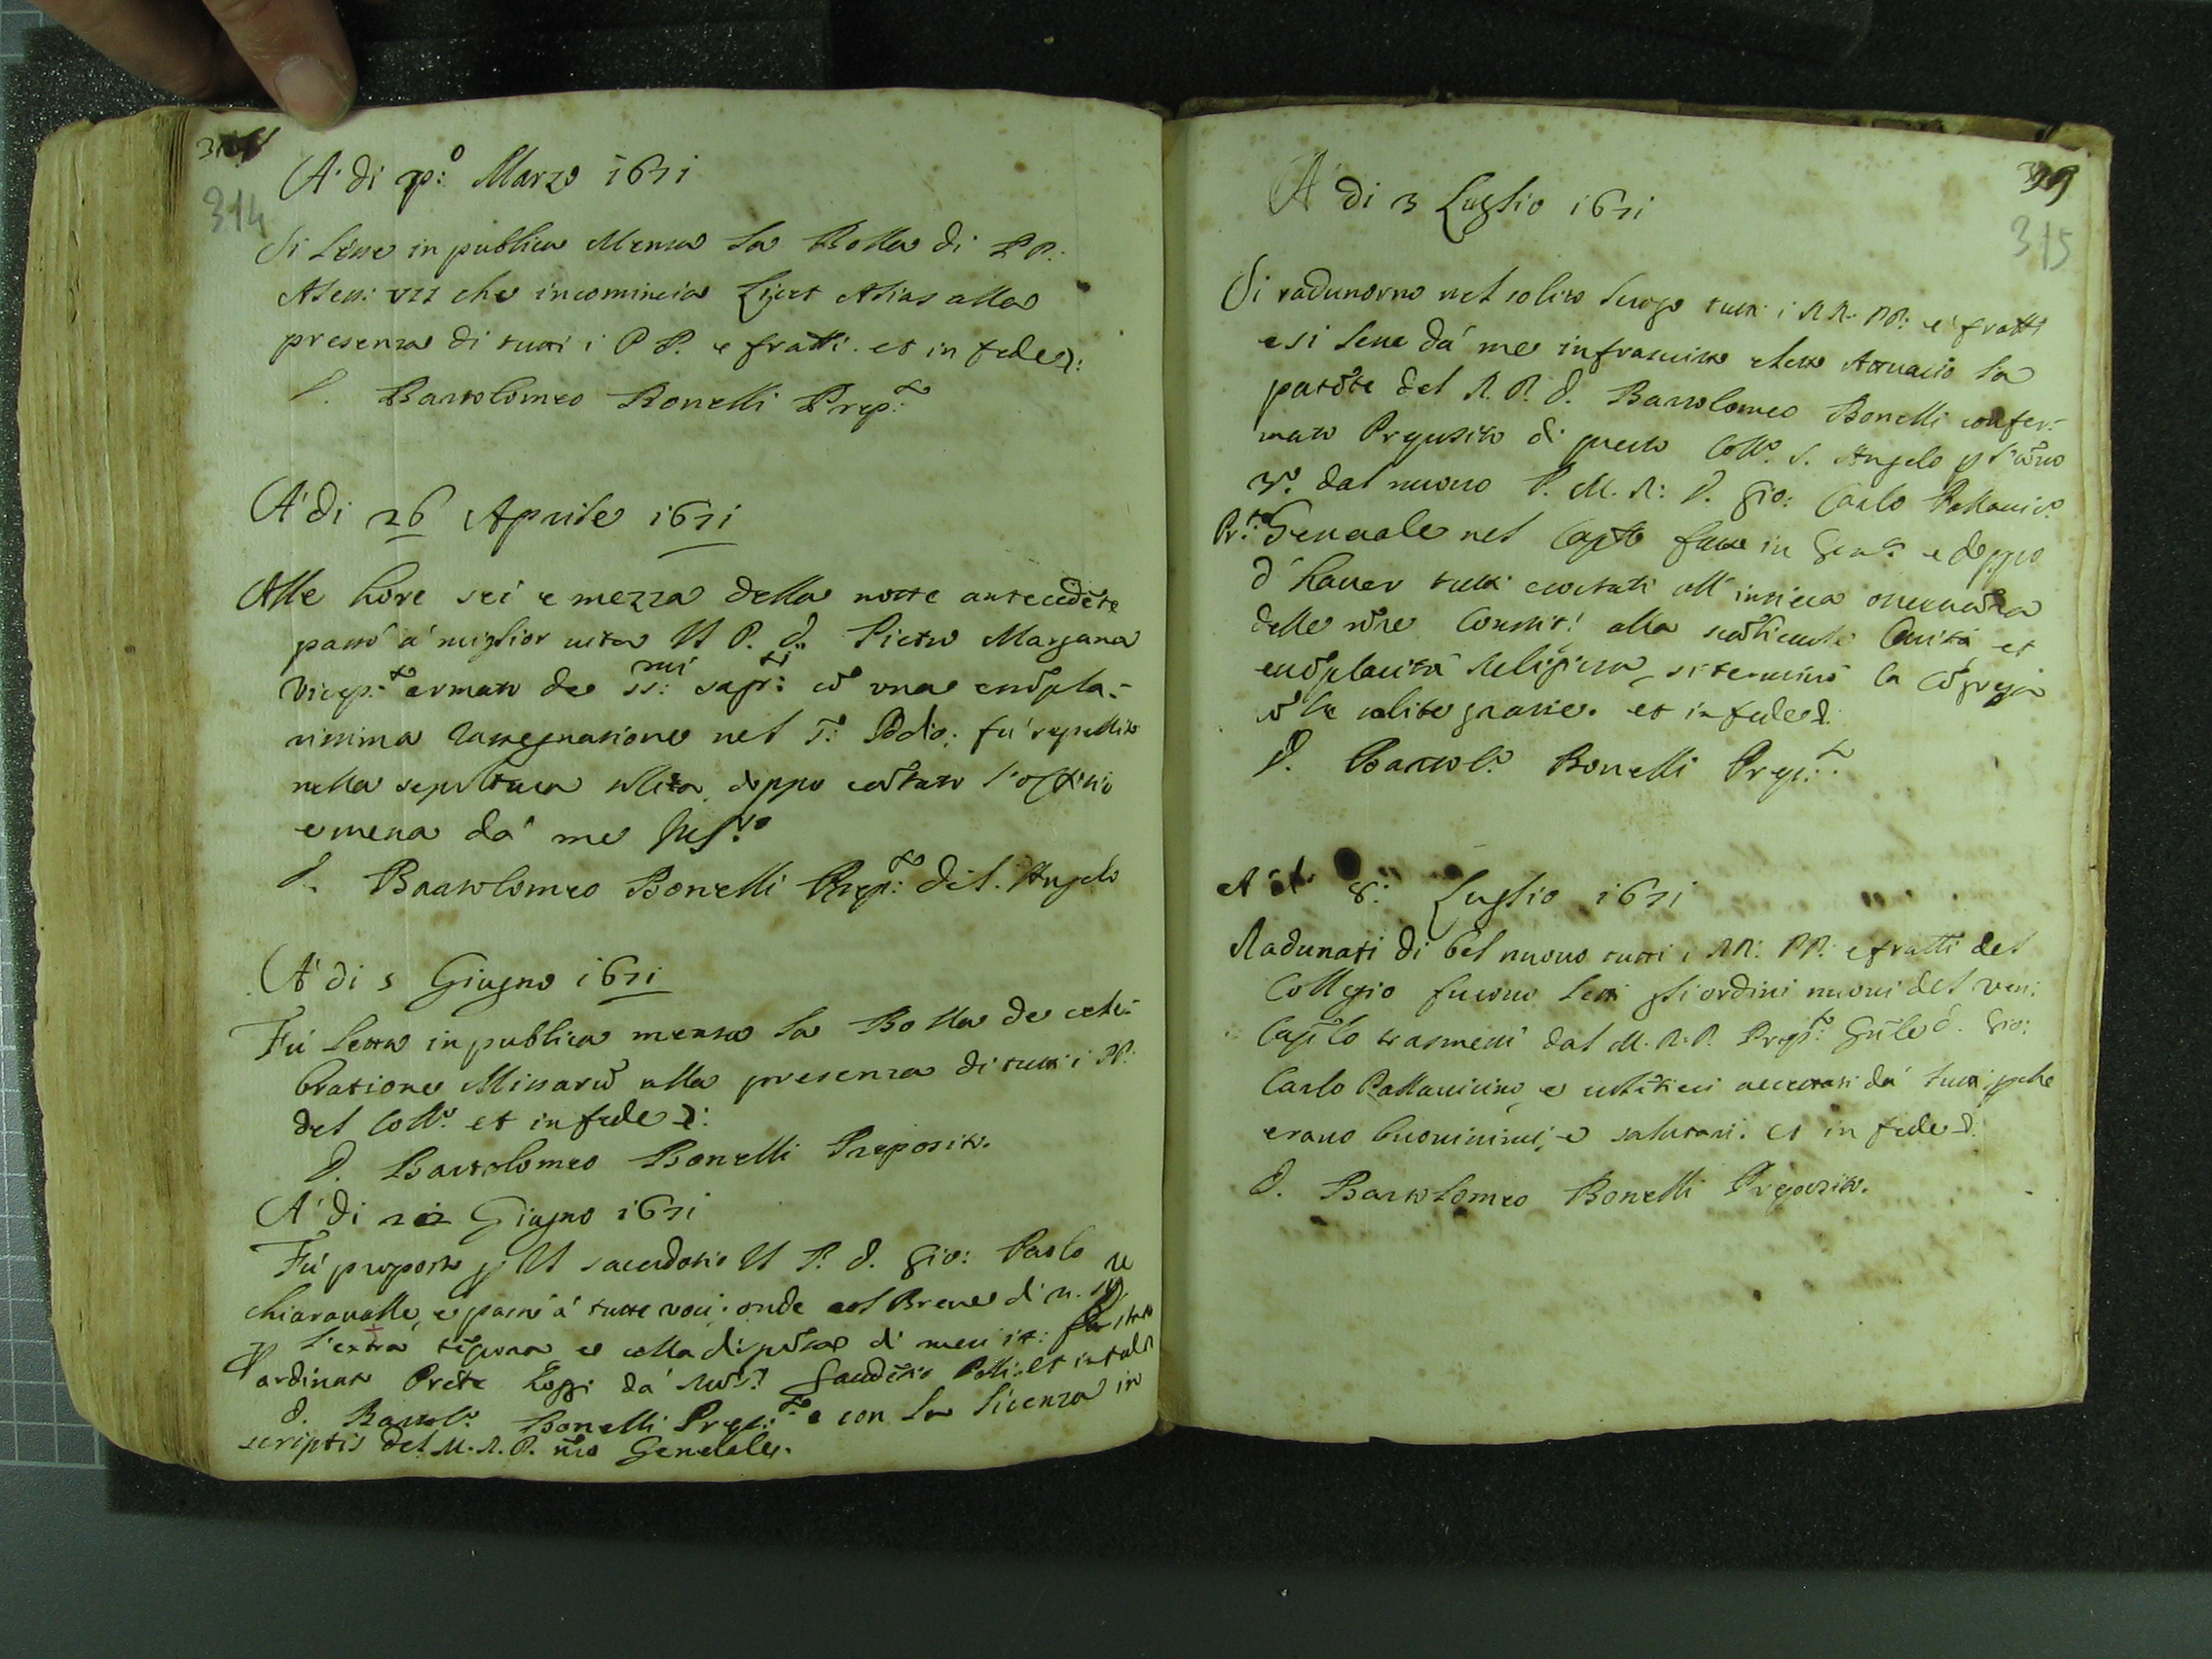 314
A' di p:º Marzo 1671
Si lesse in publica Mensa la Bolla di PP.
Aless: VII che incomincia Licet Alias alla
presenza di tutti i PP. e fratti. et in fede
D. Bartolomeo Bonelli Prep:to
A' di 26 Aprile 1671
Alle hore sei e mezza della notte antecedẽte
passò à miglior vita Il P. D. Pietro Margana
Vicep:to armato de SS:mi sagr:ti cõ una
rassegnatione nel S: fù sepellito
nella sepoltura solita doppo cãtato l'officio
e messa dà me
D. Bartolomeo Bonelli Prep:to di S. Angelo
A' di 5 Giugno 1671
Fù letta in publica mensa la Bolla de cele-
bratione Missarũ alla presenza di tutti i PP.
del Collº. et in fede
D. Bartolomeo Bonelli Preposito.
A' di 22 Giugno 1671
Fù proposto p il sacerdotio Il P. D. Gio: Paolo
Chiaravalle, e passò à tutte voci; onde col Breve di N. Sig.re
p l'extra tẽpora e colla dispẽsa di mesi
ordinato Prete hoggi dà Gaudẽtio Polli. et in fede
D. Bartolº. Bonelli Prep:to e con la licenza in
scriptis del M. R. P. nr̃o Generale.
315
A di 3 Luglio 1671
Si radunorno nel solito luogo tutti i RR. PP: e fratti
e si lesse dà me infrascritto
patẽte del R. P. D. Bartolomeo Bonelli confer-
mato Preposito di questo Collº. S. Angelo p l'ãno
3º. dal nuovo P. M. R: D. Gio: Carlo Pallavicº.
Pr:to Generale nel Capto fatto in e doppo
d'haver tutti essortati all' intiera osservãza
delle nr̃e Constit! alla Carità, et
religiosa, si terminò la
cõ le solite gratie. et in fede
D. Bartolº. Bonelli Prep:to.
A di 8: Luglio 1671
Radunati di bel nuovo tutti i RR: PP: e fratti del
Collegio furono letti gli ordini nuovi del ven:
Cap̃lo trasmessi dal M. R. P. Prep:to Gñle D. Gio:
Carlo Pallavicino, e accettati dà tutti, pche
erano buonissimi, e salutari. et in fede
D. Bartolomeo Bonelli Preposito.